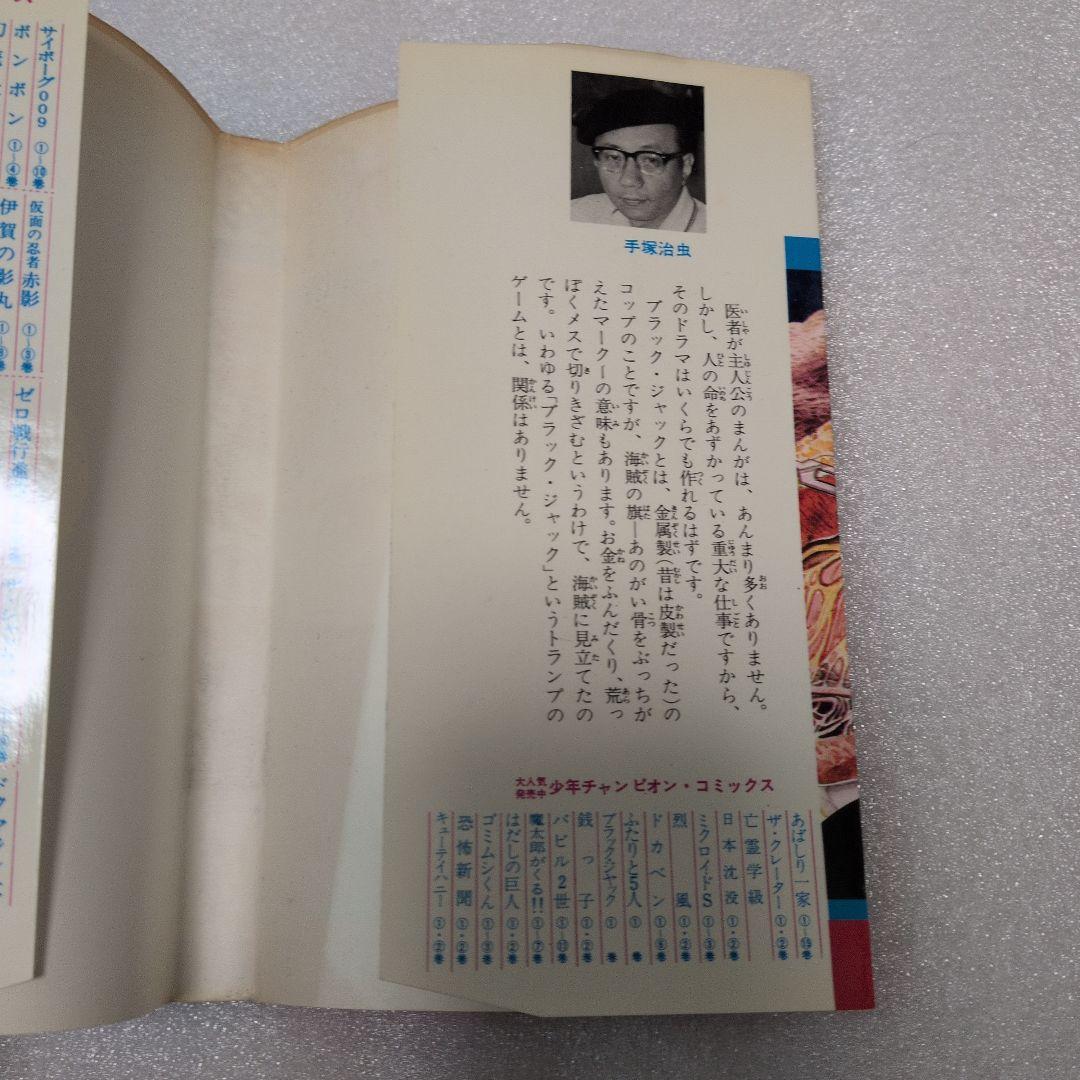 手塚治虫
医者が主人公のまんがは、あんまり多くありません。
しかし、人の命をあずかっている重大な仕事ですから、
そのドラマはいくらでも作れるはずです。
ブラック・ジャックとは、金属製（昔は皮製だった）の
コップのことですが、海賊の旗―あのがい骨をぶっちが
えたマーク―の意味もあります。お金をふんだくり、荒っ
ぽくメスで切りきざむというわけで、海賊に見立てたの
です。いわゆる「ブラック・ジャック」というトランプの
ゲームとは、関係はありません。
大人気発売中 少年チャンピオン・コミックス
あばしり一家 ①~⑮巻
ザ・クレーター ①・②巻
亡霊学級
日本沈没 ①・②巻
ミクロイドS ①~③巻
烈風 ①・②巻
ドカベン ①~⑧巻
ふたりと5人 ① 巻
ブラック・ジャック ① 巻
銭っ子 ①・②巻
バビル2世 ①~⑪巻
魔太郎がくる!! ①~⑦巻
はだしの巨人 ①・②巻
ゴミムシくん ①~③巻
恐怖新聞 ①・②巻
キューティハニー ①・②巻
サイボーグ009 ①~⑩巻
仮面の忍者 赤影 ①~③巻
ゼロ戦行進
ボンボン ①~④巻
伊賀の影丸